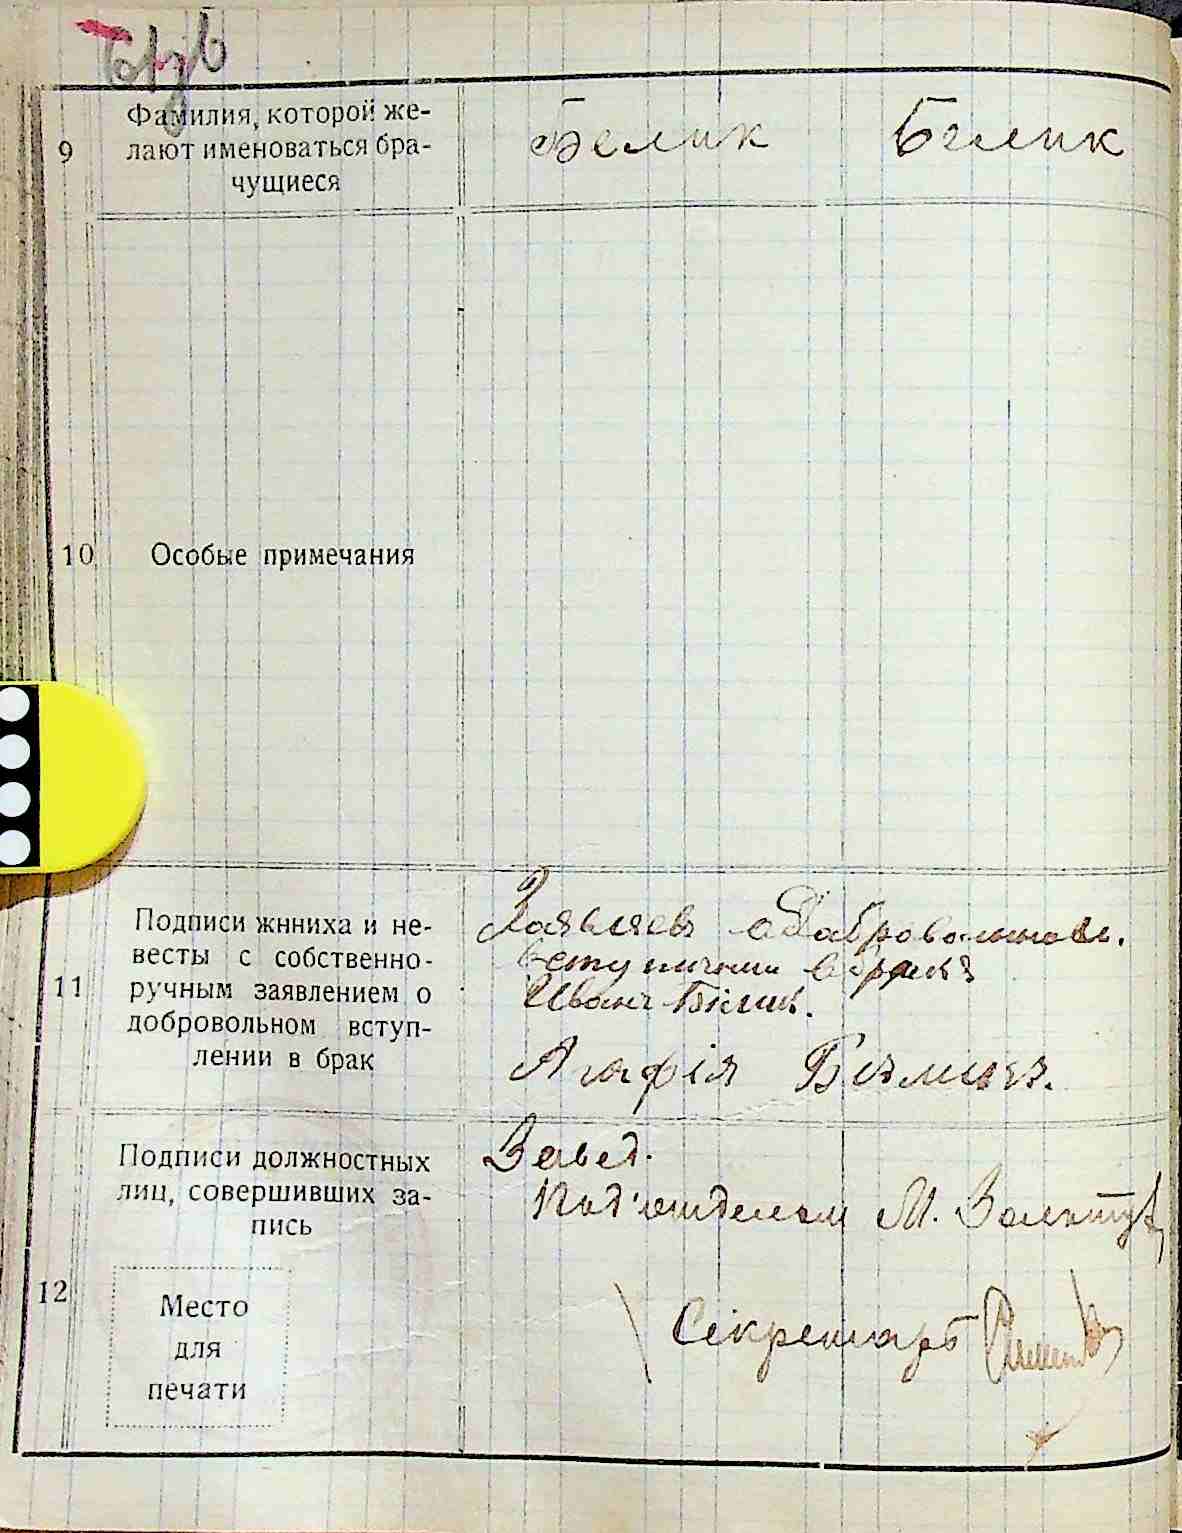 9
Фамилия, которой же-
лают именоваться бра-
чущиеся
Белик Белик
10
Особые примечания
11
Подписи жнниха и не-
весты с собственно-
ручным заявлением о
добровольном вступ-
лении в брак
браке
Иванъ
Агафія
12
Подписи должностных
лиц, совершивших за-
пись
Завед.
Под'отделом М.
Секретарь
Место
для
печати